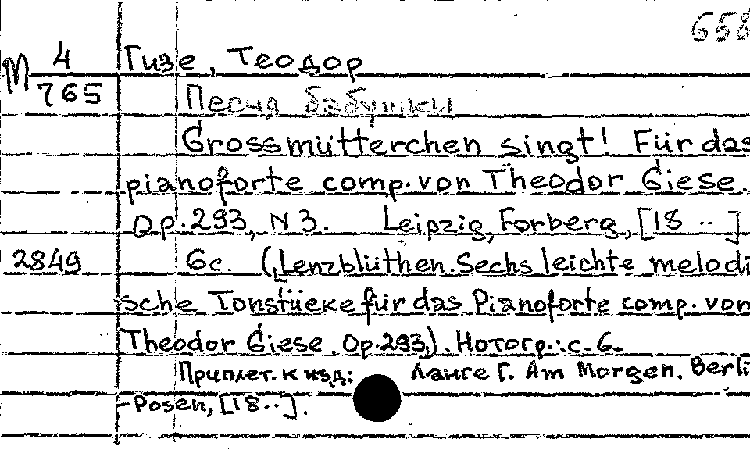 658
М 4 Гизе, Теодор
765 Песня бабушки
Grossmütterchen singt! Für das
pianoforte comp. von Theodor Giese.
Op. 293, N 3. Leipzig, Forberg, [18 ··]
2849 6c. (Lenzblüthen. Sechs leichte melodi
sche Tonstücke für das Pianoforte comp. von
Theodor Giese. Op. 293.). Нотогр.: с. 6.
Приплет. к изд.: Ланге Г. Am Morgen. Berli
-Posen, [18··].